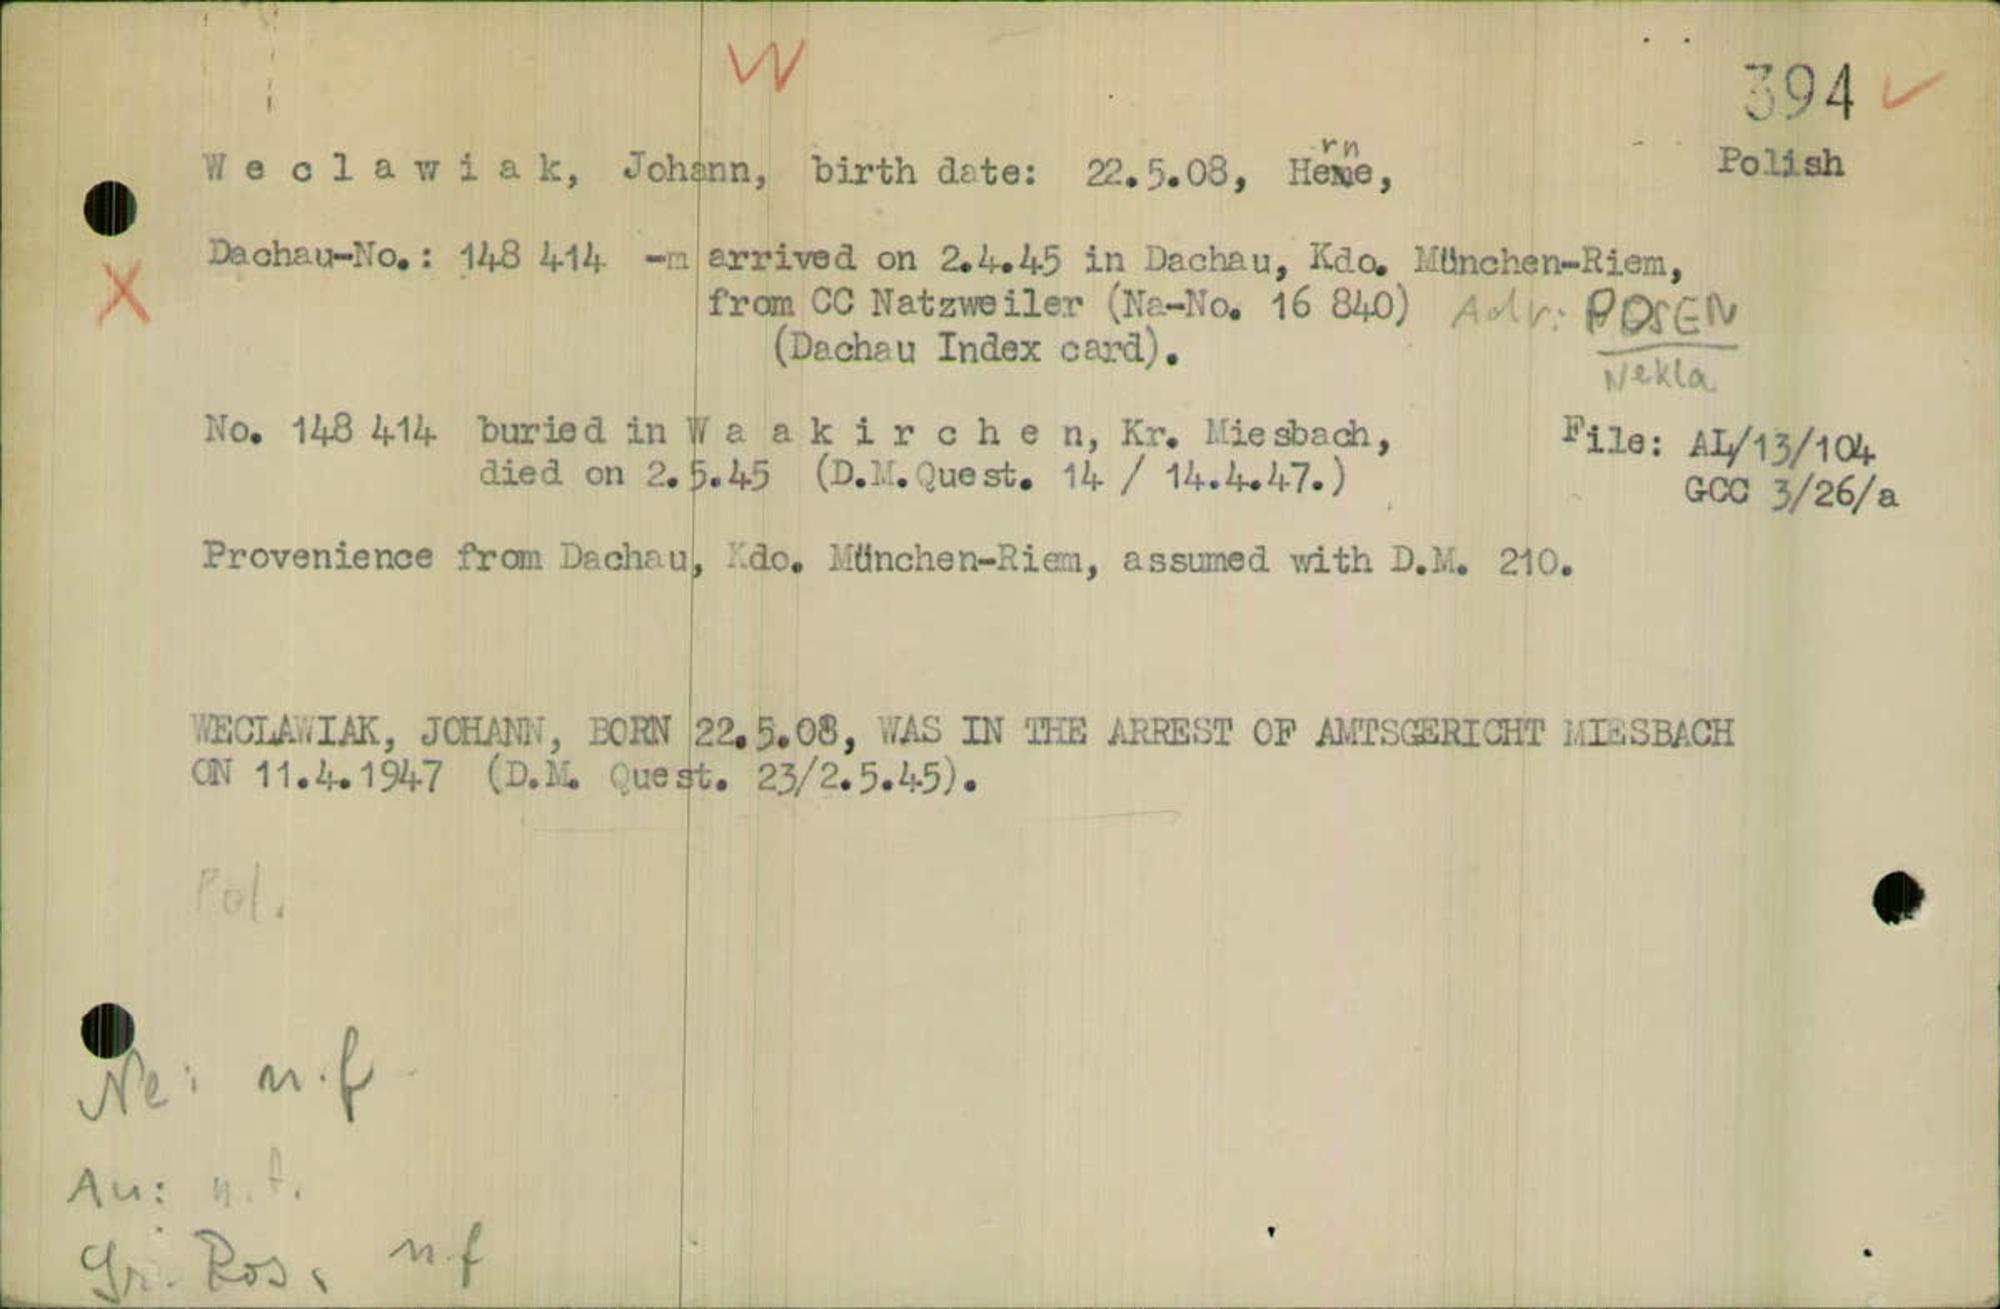 W
394 ✓
Polish
W e c l a w i a k, Johann, birth date: 22.5.08, Herne,
Dachau-No.: 148 414 -m arrived on 2.4.45 in Dachau, Kdo. München-Riem,
X
from CC Natzweiler (Na-No. 16 840) Adr: POSEN
(Dachau Index card).
Nekla
No. 148 414 buried in W a a k i r c h e n, Kr. Miesbach,
File: AL/13/104
died on 2.5.45 (D.M.Quest. 14 / 14.4.47.)
GCC 3/26/a
Provenience from Dachau, Kdo. München-Riem, assumed with D.M. 210.
WECLAWIAK, JOHANN, BORN 22.5.08, WAS IN THE ARREST OF AMTSGERICHT MIESBACH
ON 11.4.1947 (D.M. Quest. 23/2.5.45).
Pol.
Ne: n.f
Au: n.f.
Gr. Ros. n.f